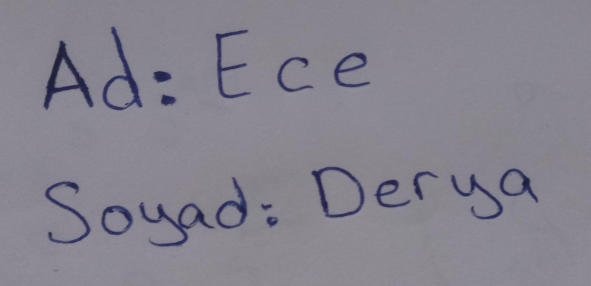 Ad: Ece
Soyad: Derya